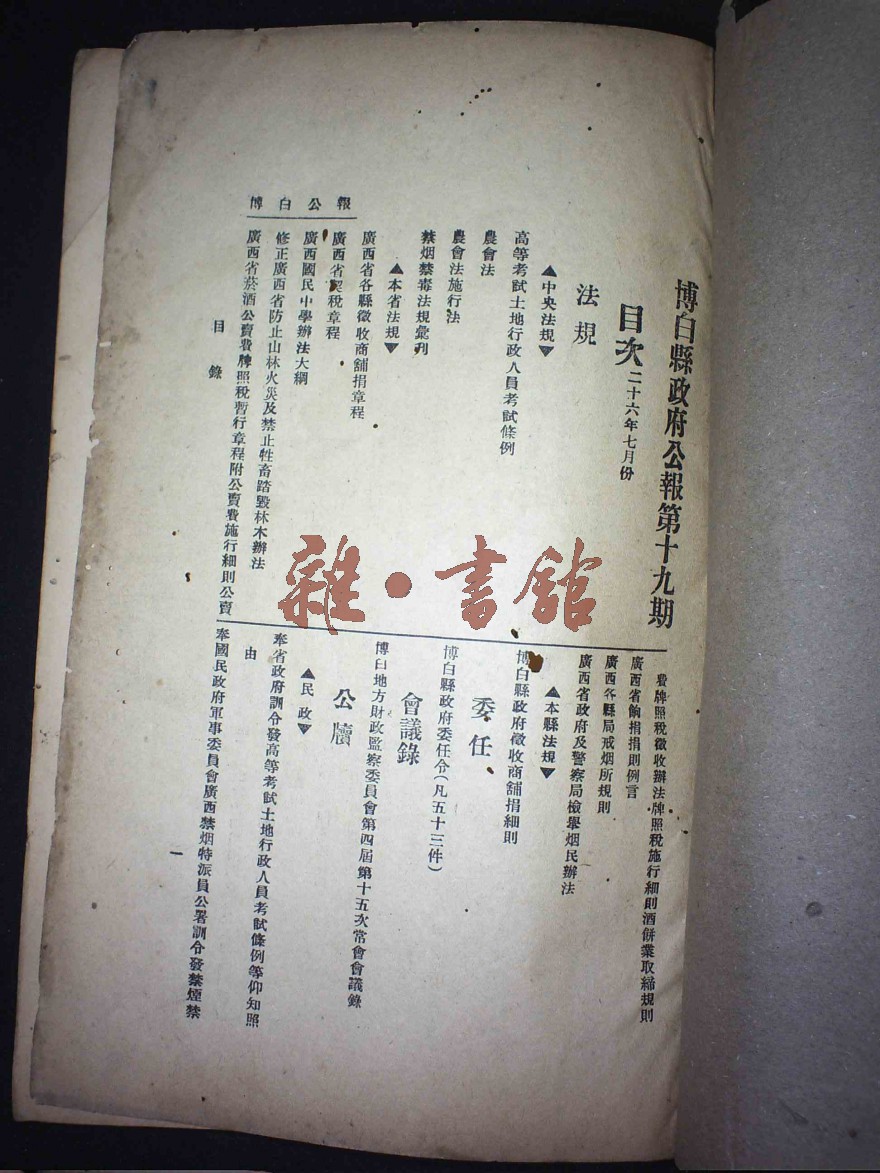 博白縣政府公報第十九期
目次 二十六年七月份
法規
▲中央法規▼
高等考試土地行政人員考試條例
農會法
農會法施行法
禁烟禁毒法規彙刋
▲本省法規▼
廣西省各縣徵收商舖捐章程
廣西省契稅章程
廣西國民中學辦法大綱
修正廣西省防止山林火災及禁止牲畜踏毀林木辦法
廣西省菸酒公賣費牌照稅暫行章程附公賣費施行細則公賣
費牌照稅徵收辦法牌照稅施行細則酒餅業取締規則
廣西省餉捐捐則例言
廣西各縣局戒烟所規則
廣西省政府及警察局檢舉烟民辦法
▲本縣法規▼
博白縣政府徵收商舖捐細則
委任
博白縣政府委任令(凡五十三件)
會議錄
博白地方財政監察委員會第四屆第十五次常會會議錄
公牘
▲民政▼
奉省政府訓令發高等考試土地行政人員考試條例等仰知照
由
奉國民政府軍事委員會廣西禁烟特派員公署訓令發禁煙禁
博白公報
目錄
一
雜·書館